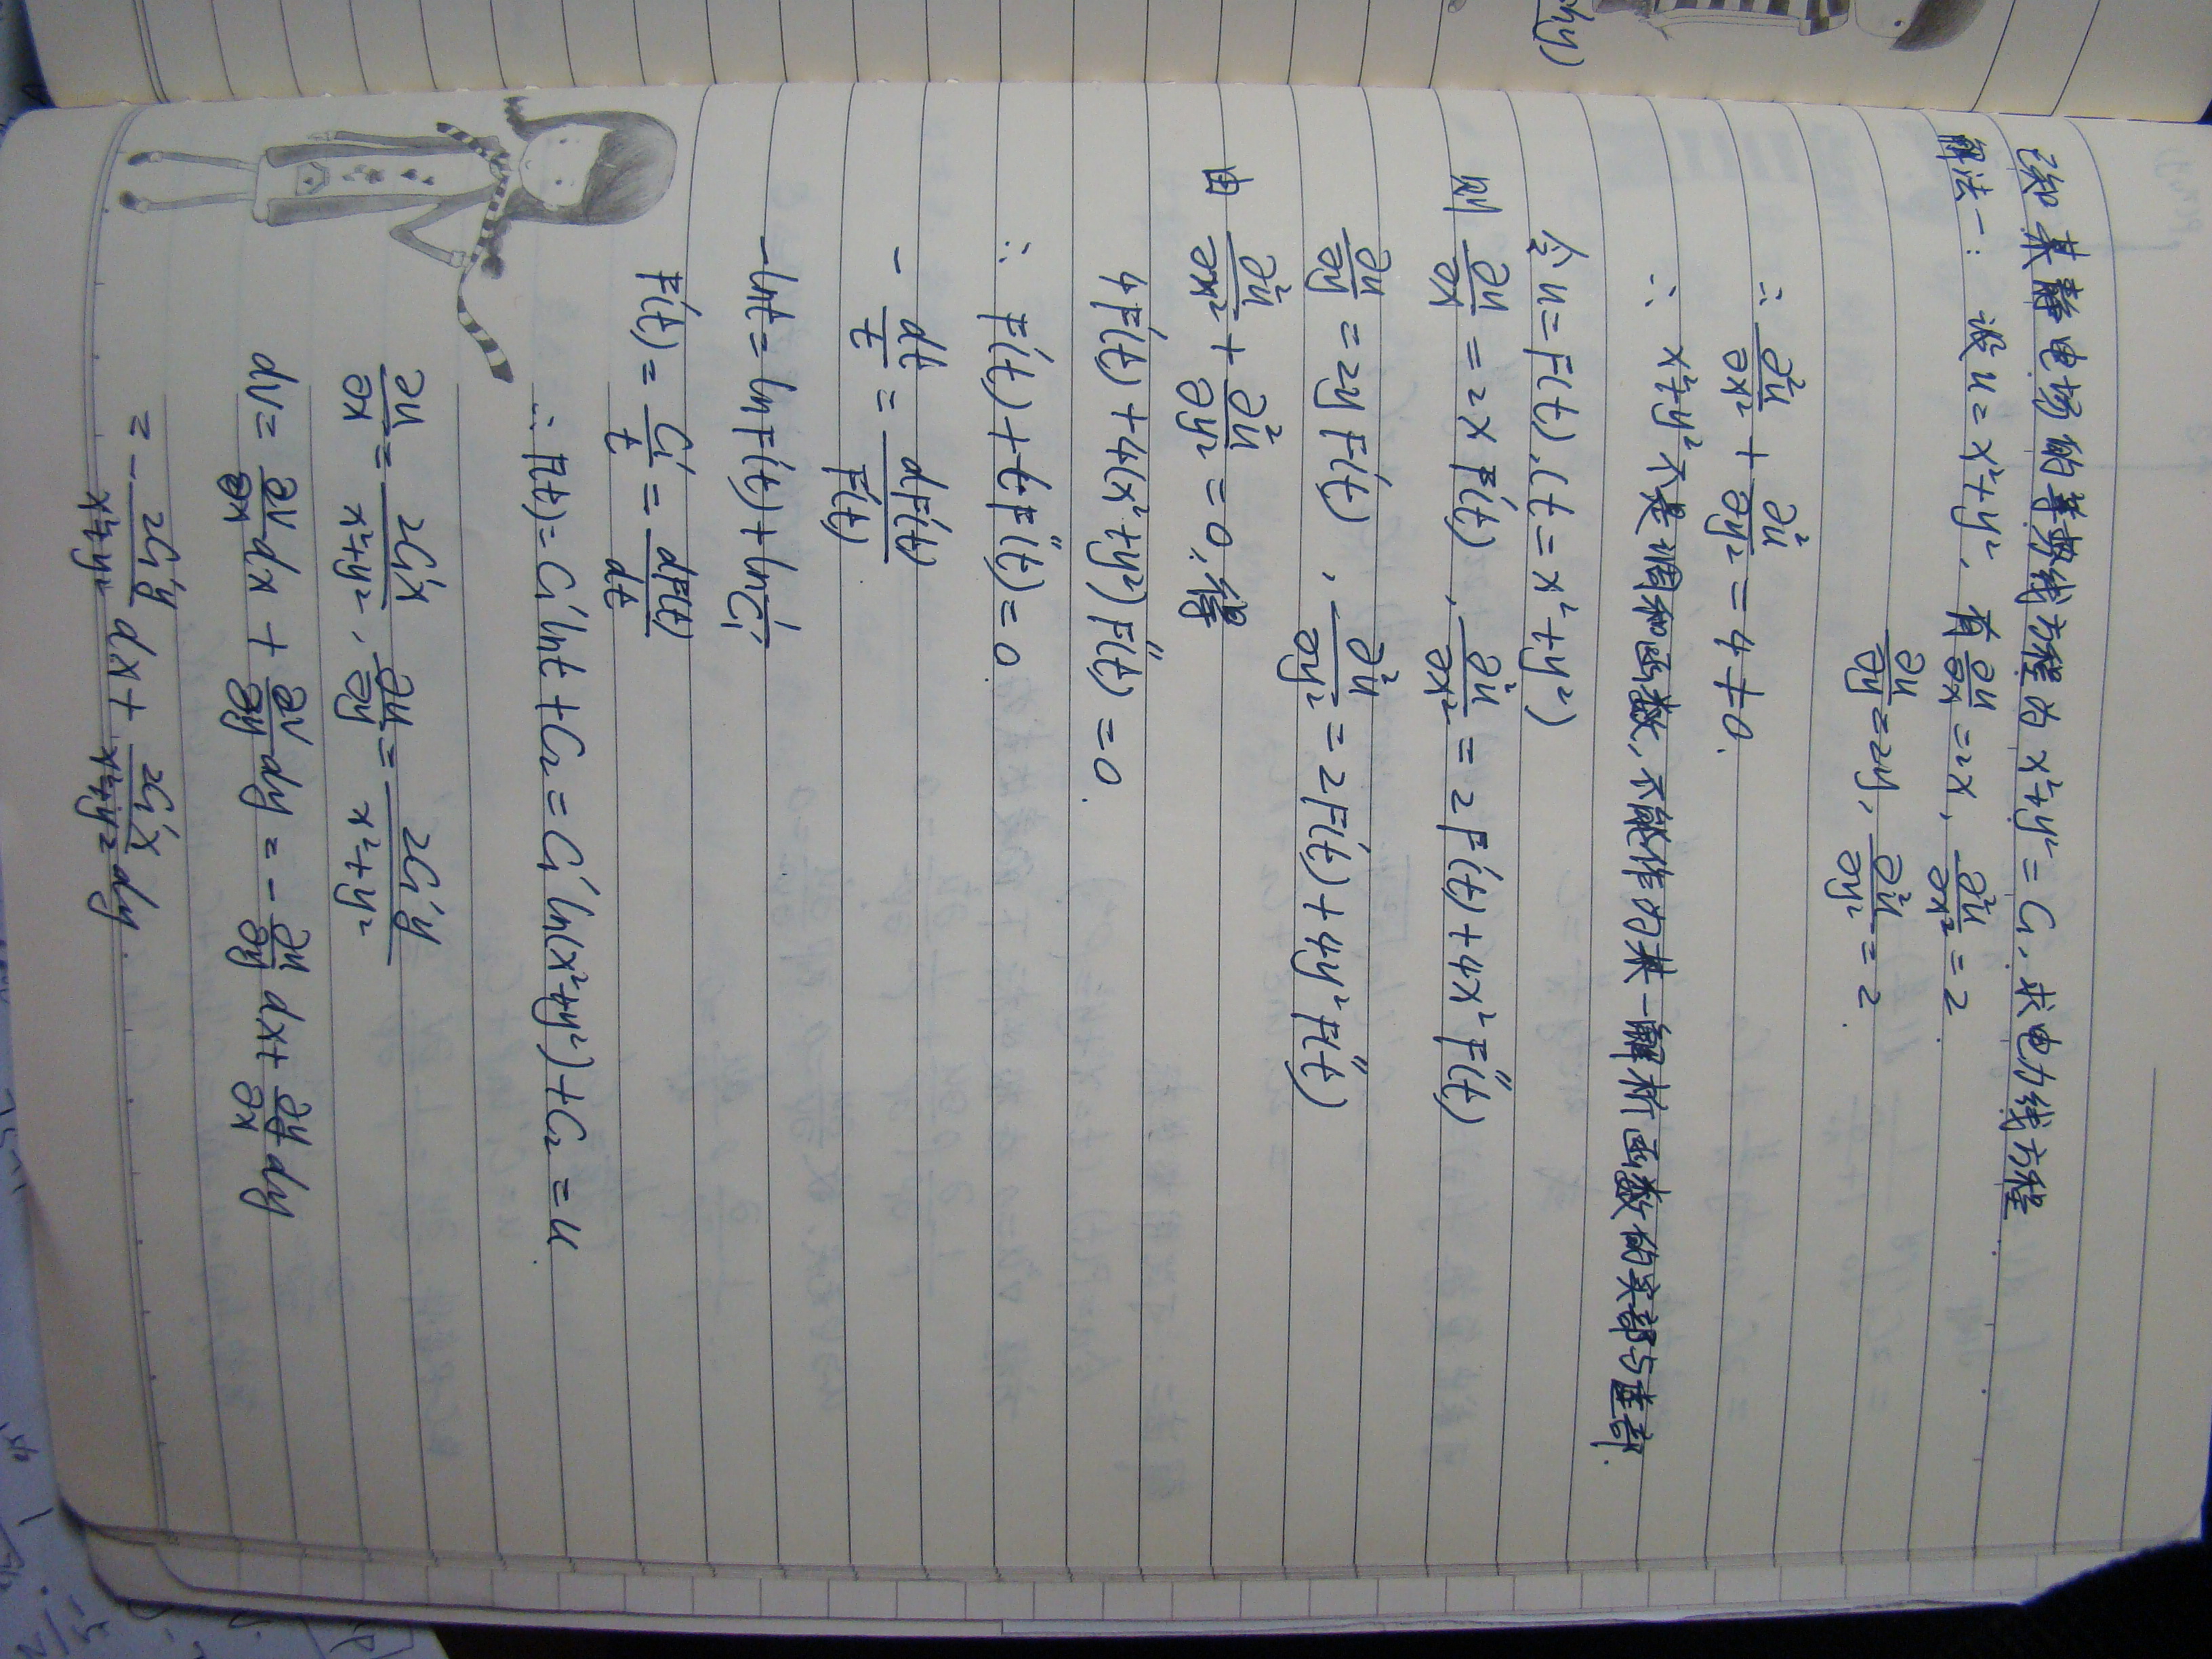 已知某静电场的等势线方程为 x²+y²=C₁, 求电力线方程.
解法一: 设 u=x²+y², 有 ∂u/∂x=2x, ∂²u/∂x²=2
∂u/∂y=2y, ∂²u/∂y²=2.
∴ ∂²u/∂x² + ∂²u/∂y² = 4≠0.
∴ x²+y²不是调和函数, 不能作为某一解析函数的实部与虚部.
令 u=F(t), (t=x²+y²)
则 ∂u/∂x = 2x F'(t), ∂²u/∂x² = 2F'(t)+4x²F''(t)
∂u/∂y = 2y F'(t), ∂²u/∂y² = 2F'(t)+4y²F''(t)
由 ∂²u/∂x² + ∂²u/∂y² = 0, 得
4F'(t)+4(x²+y²)F''(t)=0.
∴ F'(t)+tF''(t)=0
- dt/t = dF'(t)/F'(t)
-lnt = lnF'(t)+lnC₁'
F'(t) = C₁'/t = dF(t)/dt
∴ F(t)=C₁'lnt+C₂=C₁'ln(x²+y²)+C₂=u.
∂u/∂x = 2C₁'x/x²+y², ∂u/∂y = 2C₁'y/x²+y²
dv= ∂v/∂x dx + ∂v/∂y dy = - ∂u/∂y dx + ∂u/∂x dy
= - 2C₁'y/x²+y² dx + 2C₁'x/x²+y² dy.